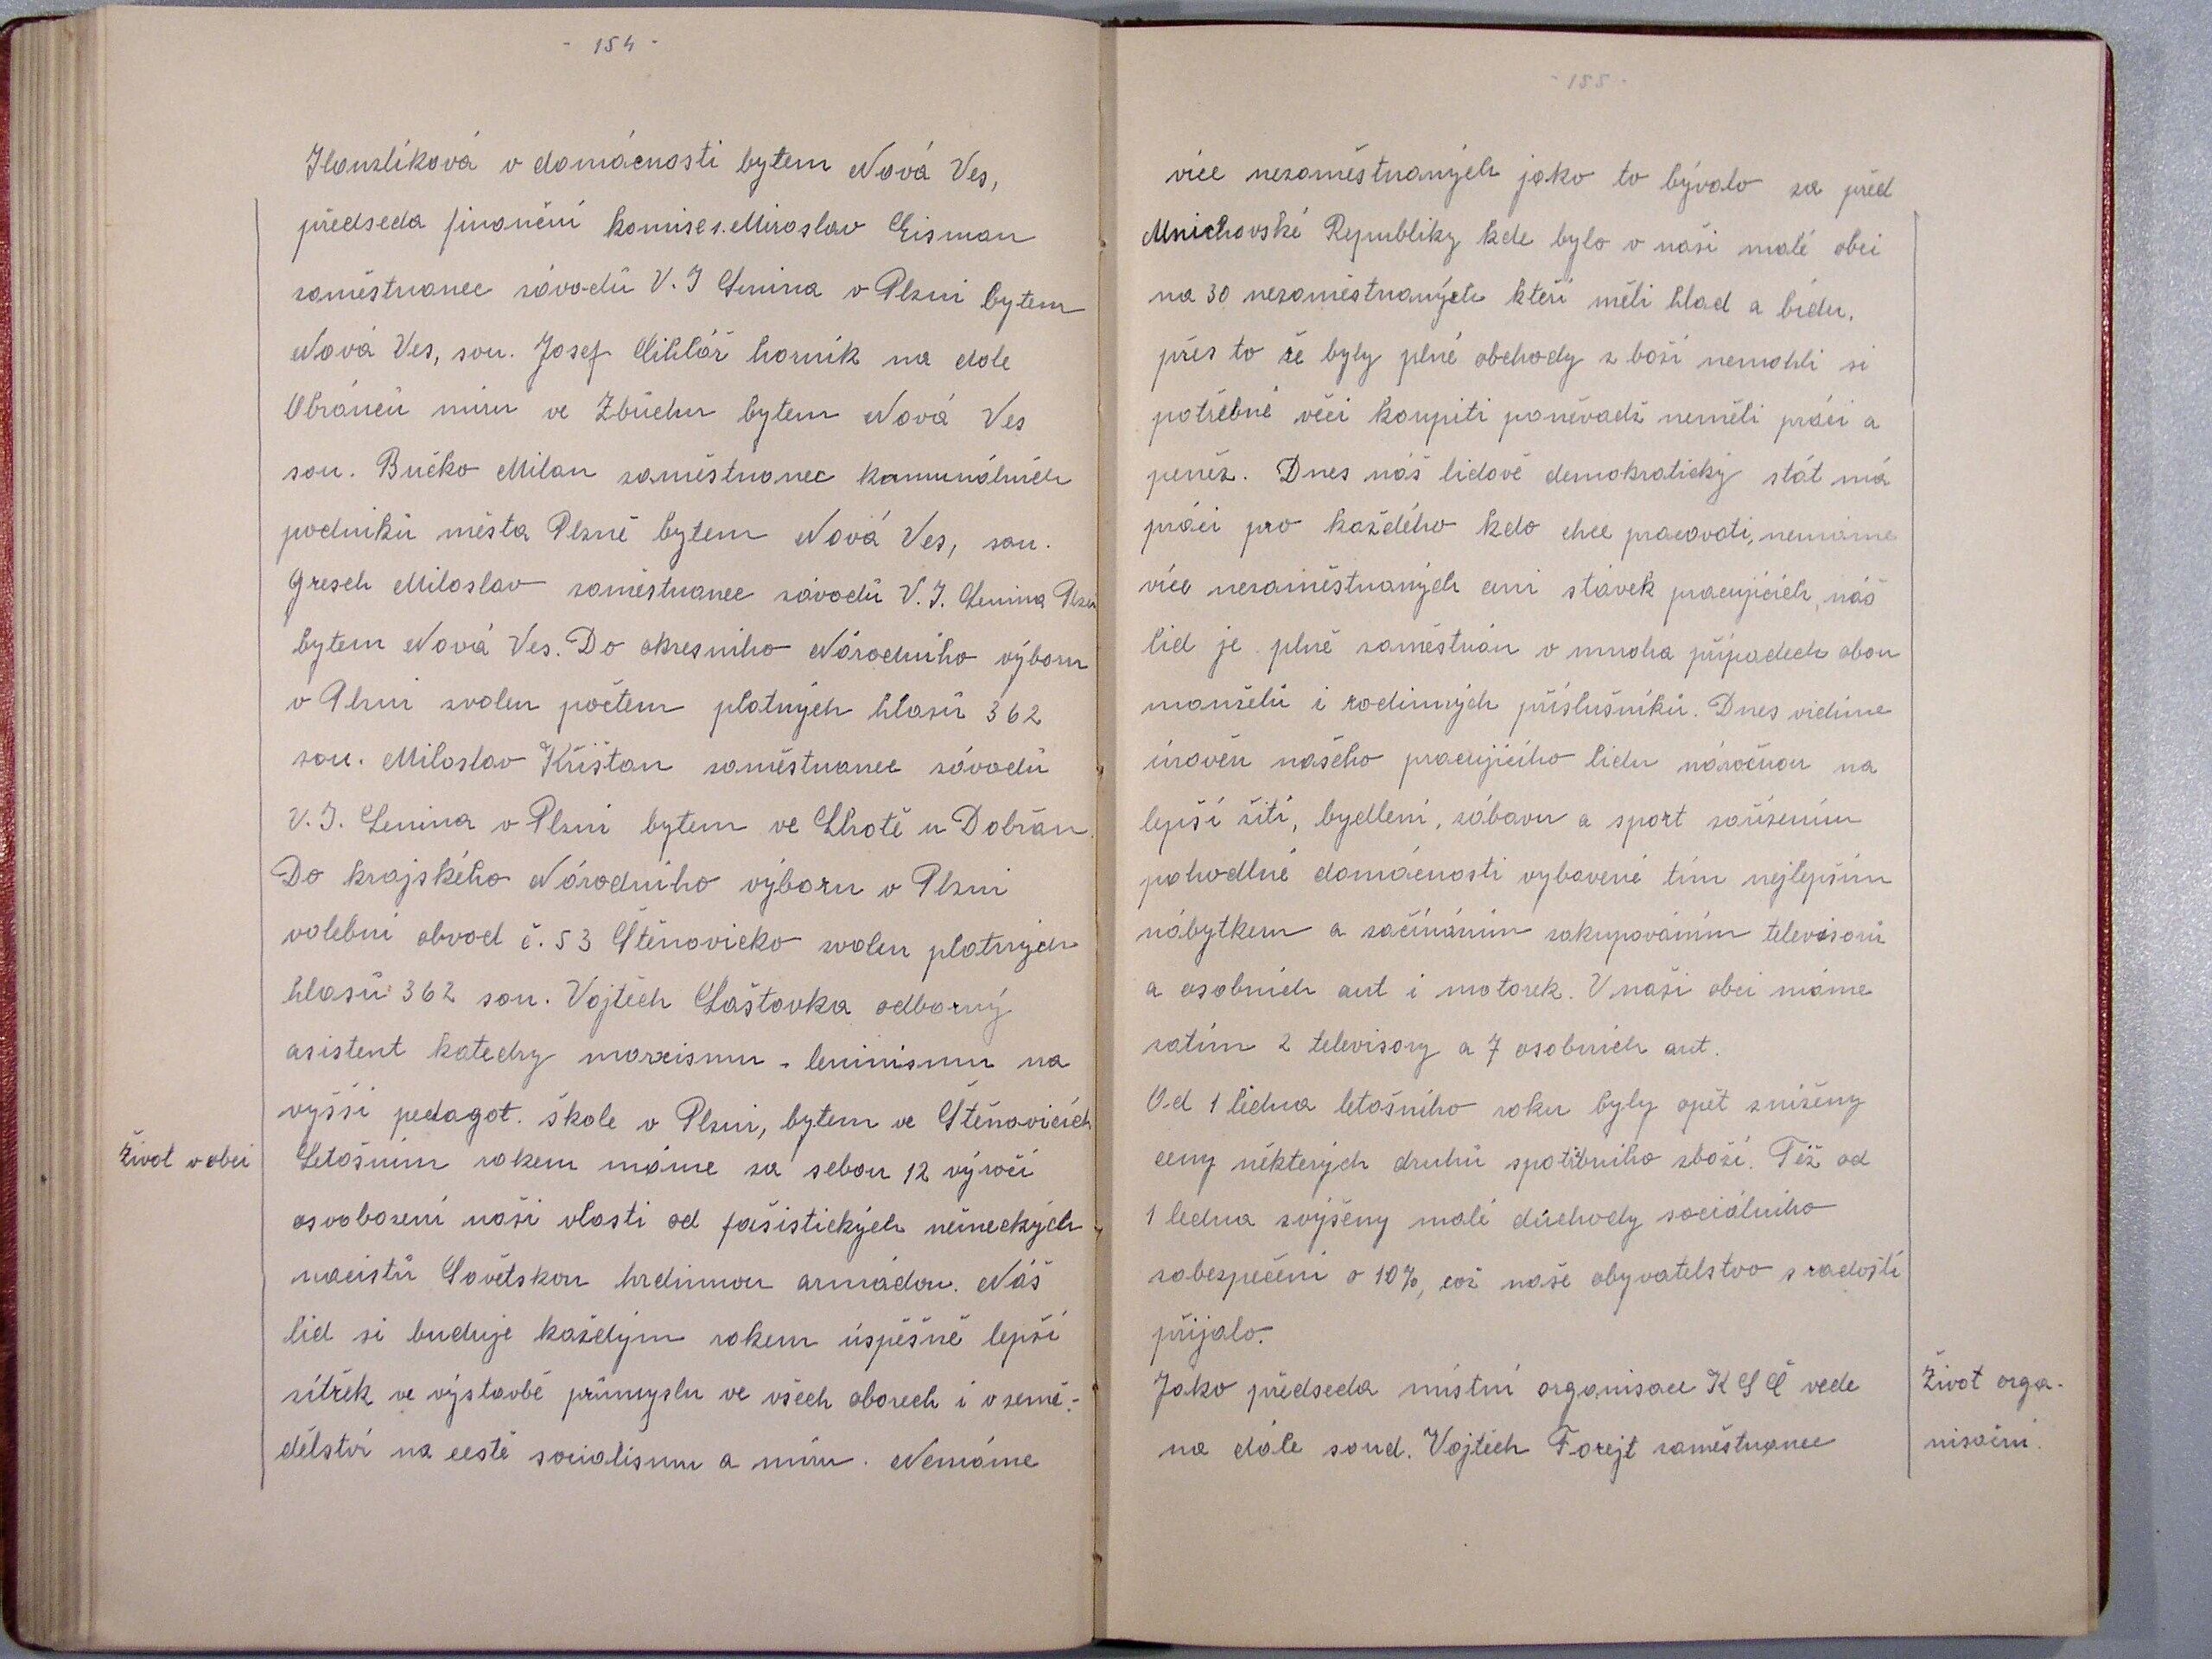 - 154 -
Hanzlíková v domácnosti bytem Nová Ves,
předseda finanční komise s. Miroslav Eisman
zaměstnanec závodů V. I Lenina v Plzni bytem
Nová Ves, sou. Josef Cihlář horník na dole
Obránců míru ve Zbůchu bytem Nová Ves
sou. Bučko Milan zaměstnanec komunálních
podniků města Plzně bytem Nová Ves, sou.
Gresch Miloslav zaměstnanec závodů V. I. Lenina Plzeň
bytem Nová Ves. Do okresního Národního výboru
v Plzni zvolen počtem platných hlasů 362
sou. Miloslav Křišťan zaměstnanec závodů
V. I. Lenina v Plzni bytem ve Lhotě u Dobřan.
Do krajského Národního výboru v Plzni
volební obvod č. 53 Štěnovicko zvolen platných
hlasů 362 sou. Vojtěch Laštovka odborný
asistent katedry marxismu - leninismu na
vyšší pedagog. škole v Plzni, bytem ve Štěnovicích
Život v obci
Letošním rokem máme za sebou 12 výročí
osvobození naši vlasti od fašistických německých
nacistů Sovětskou hrdinnou armádou. Náš
lid si buduje každým rokem úspěšně lepší
zítřek ve výstavbě průmyslu ve všech oborech i v země-
dělství na cestě socialismu a míru. Nemáme
- 155 -
více nezaměstnaných jako to bývalo za před
Mnichovské Republiky kde bylo v naši malé obci
na 30 nezaměstnaných kteří měli hlad a bídu.
přes to že byly plné obchody z boží nemohli si
potřebné věci koupiti poněvadž neměli práci a
peněz. Dnes náš lidově demokratický stát má
práci pro každého kdo chce pracovati, nemame
více nezaměstnaných ani stávek pracujících, náš
lid je plně zaměstnán v mnoha případech obou
manželů i rodinných příslušníků. Dnes vidíme
úroveň našeho pracujícího lidu náročnou na
lepší žití, bydlení, zábavu a sport zařízením
pohodlné domácnosti vybavené tím nejlepším
nábytkem a začínáním zakupováním televisorů
a osobních aut i motorek. V naši obci máme
zatím 2 televisory a 7 osobních aut.
Od 1 ledna letošního roku byly opět sníženy
ceny některých druhů spotřebního zboží. Též od
1 ledna zvýšeny malé důchody sociálního
zabezpečení o 10%, což naše obyvatelstvo s radostí
přijalo.
Jako předseda místní organisace KSČ vede
na dále soud. Vojtěch Forejt zaměstnanec
Život orga-
nisační.